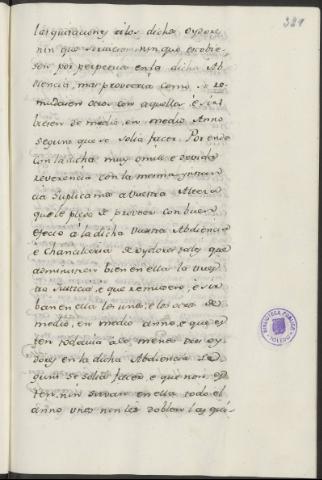 381
las quitaciones á los dichos oydores,
nin que sirviesen, nin que estobie-
sen por perpetua en la dicha Ab-
diencia, mas proveeria como se re-
mudasen otros con aquellos, é sir-
biesen de medio, en medio Anno
segund que se solia facer. Por ende
con la dicha muy omill e devida
reverencia con la mesma instan-
cia Suplicamos a vuestra Alteza
que le plega de proveer con buen
efecto á la dicha vuestra Abdiencia
e Chancilleria de oydores tales que
administren bien en ella la vues-
tra Justicia, e que remuden, e sir-
ban en ella los unos, e los otros de
medio, en medio anno, e que es-
ten todavia alo menos dos oy-
dores en la dicha Abdiencia se-
gund se solia facer e que non es-
ten, nin sirvan en ella todo el
anno unos nin les doblen las qui-
BIBLIOTECA PUBLICA
TOLEDO